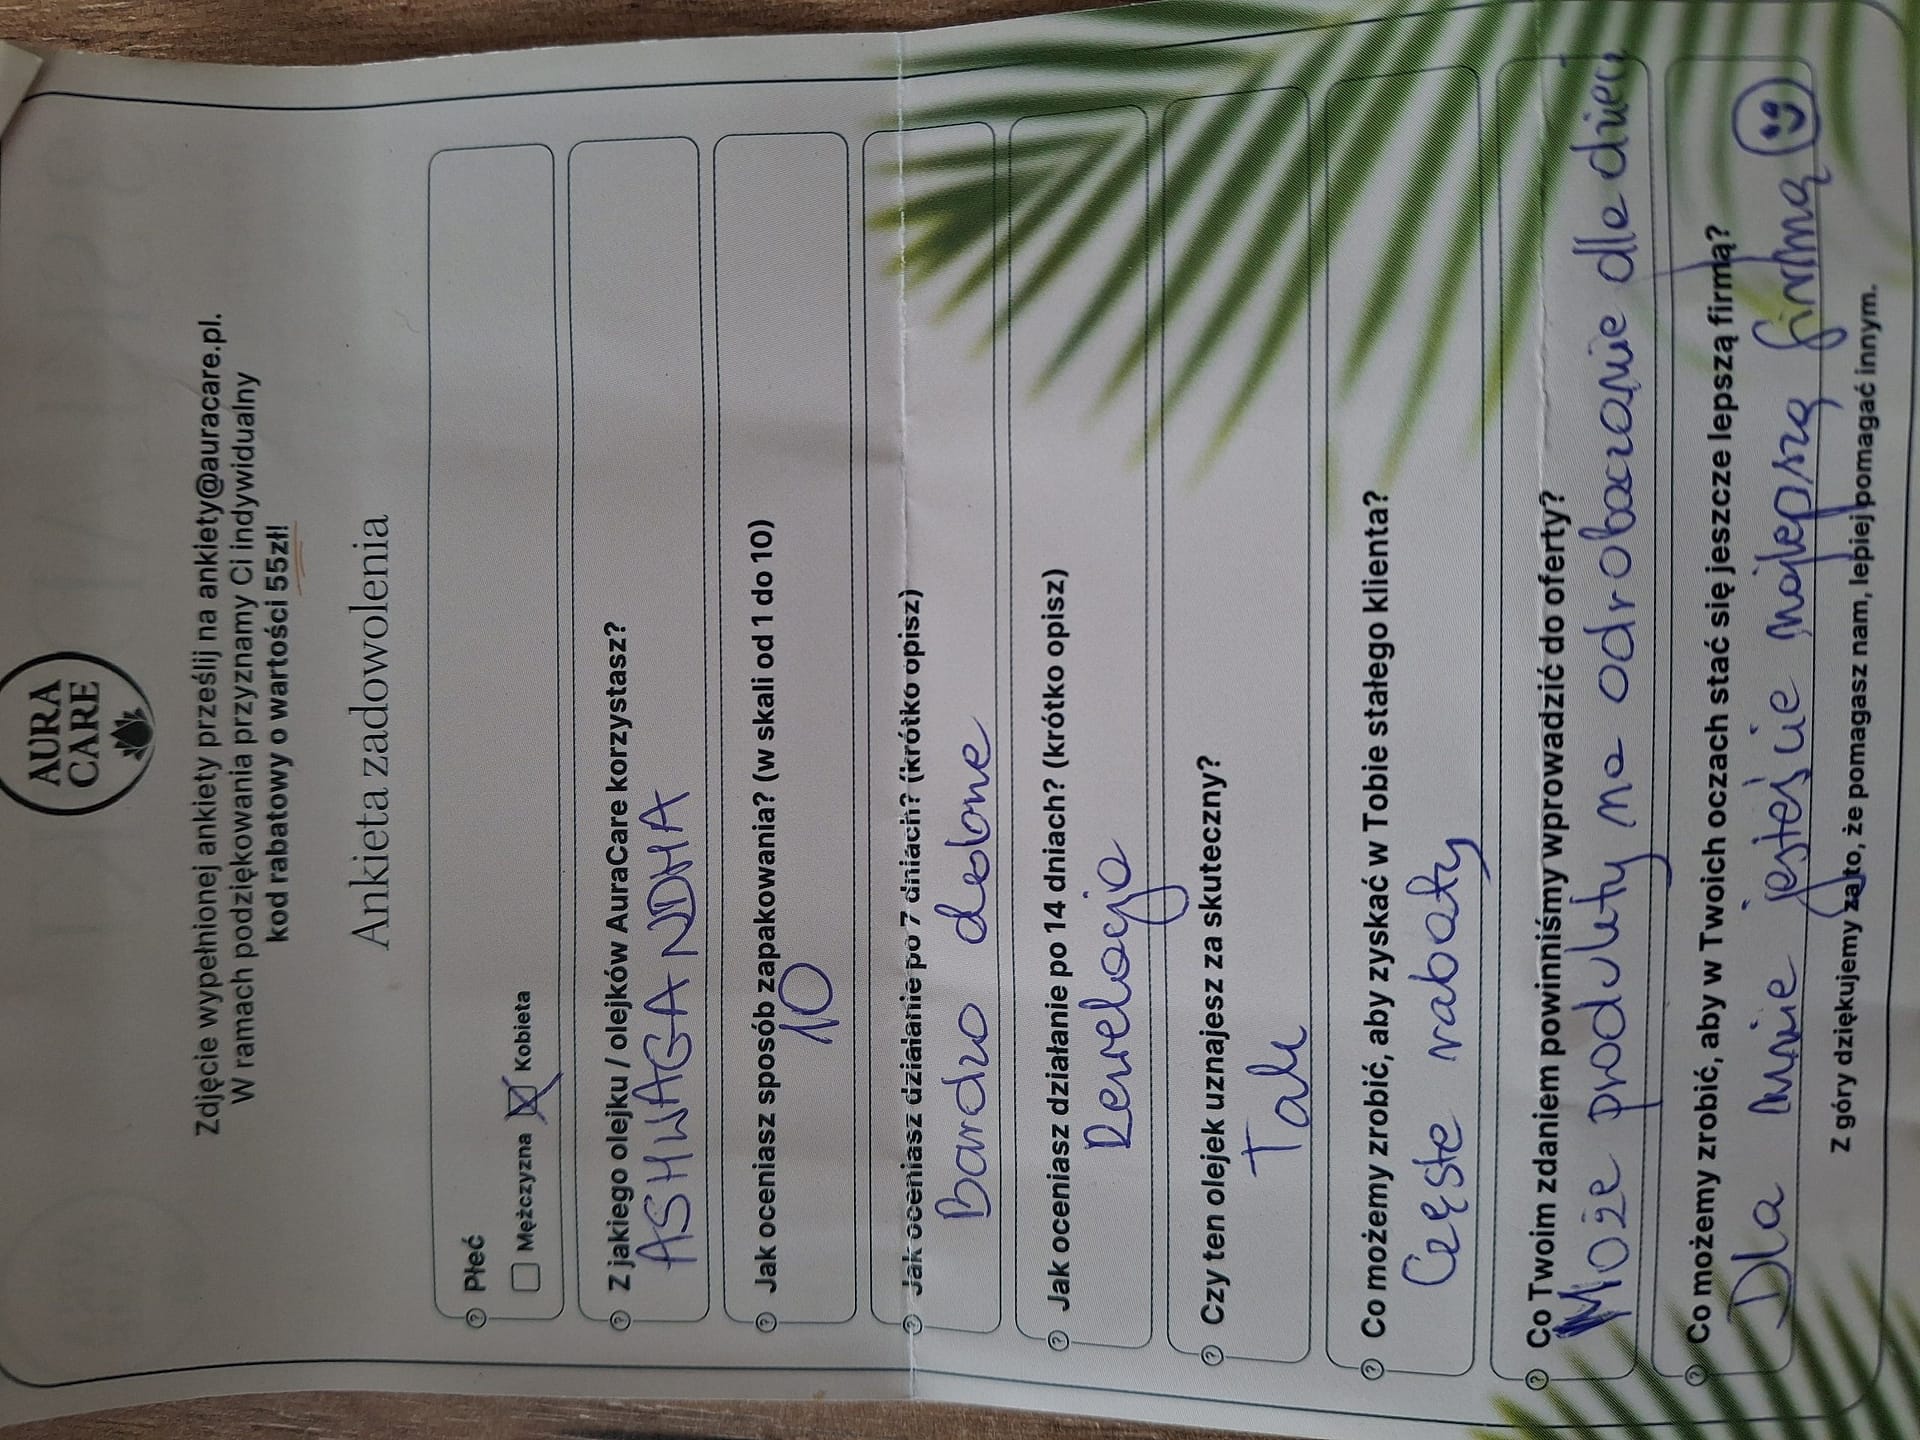 AURA
CARE
Zdjęcie wypełnionej ankiety prześlij na ankiety@auracare.pl.
W ramach podziękowania przyznamy Ci indywidualny
kod rabatowy o wartości 55zł!
Ankieta zadowolenia
Płeć
Mężczyzna Kobieta
Z jakiego olejku / olejków AuraCare korzystasz?
ASHWAGANDHA
Jak oceniasz sposób zapakowania? (w skali od 1 do 10)
10
Jak oceniasz działanie po 7 dniach? (krótko opisz)
Bardzo dobrze
Jak oceniasz działanie po 14 dniach? (krótko opisz)
Rewelacja
Czy ten olejek uznajesz za skuteczny?
Tak
Co możemy zrobić, aby zyskać w Tobie stałego klienta?
Częste rabaty
Co Twoim zdaniem powinniśmy wprowadzić do oferty?
Może produkty na odrobaczanie dla dzieci
Co możemy zrobić, aby w Twoich oczach stać się jeszcze lepszą firmą?
Dla mnie jesteście najlepszą firmą
Z góry dziękujemy za to, że pomagasz nam, lepiej pomagać innym.